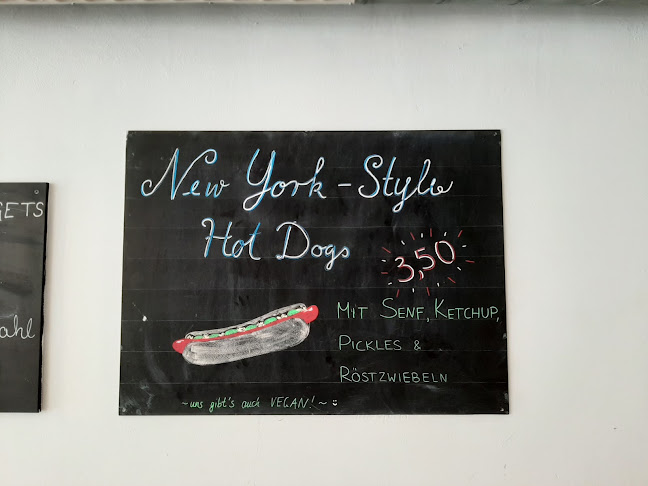 New York-Style
Hot Dogs
3,50
MIT SENF, KETCHUP,
PICKLES &
RÖSTZWIEBELN
~uns gibt's auch VEGAN!~
GETS
ahl